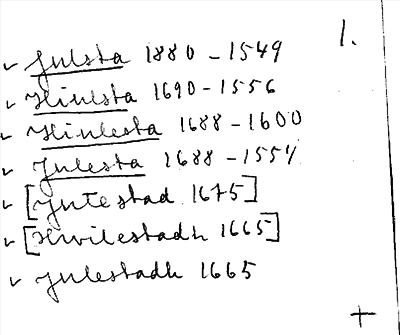 1.
✓ Julsta 1880 - 1549
✓ Hiulsta 1690 - 1556
✓ Hiulesta 1688 - 1600
✓ Julesta 1688 - 1554
✓ [Jutestad 1675]
✓ [Hwilestadh 1665]
✓ Julestadh 1665
+